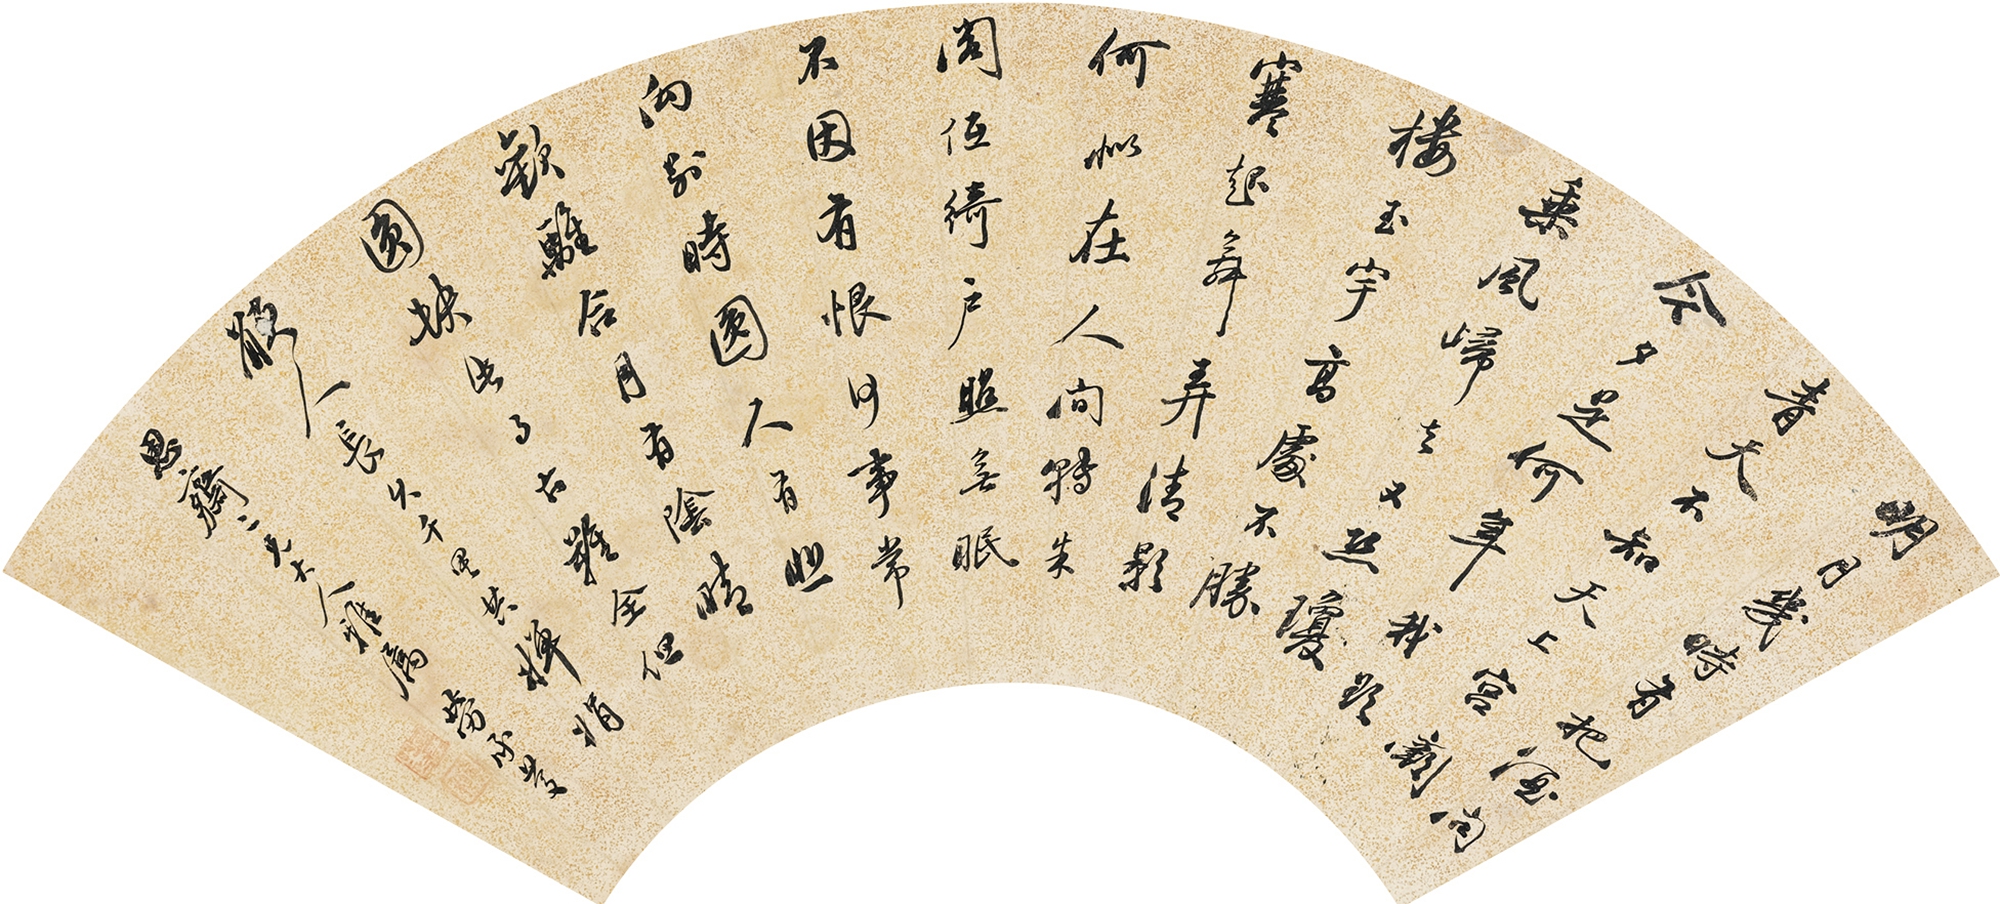 明月幾時有把酒問
青天不知天上宮闕
今夕是何年我欲
乘風歸去又恐瓊
樓玉宇高處不勝
寒起舞弄清影
何似在人間轉朱
閣低綺戶照無眠
不因有恨何事常
向別時圓人有悲
歡離合月有陰晴
圓缺此事古難全但
願人長久千里共嬋娟
思齋二兄大人雅屬 勞承慶